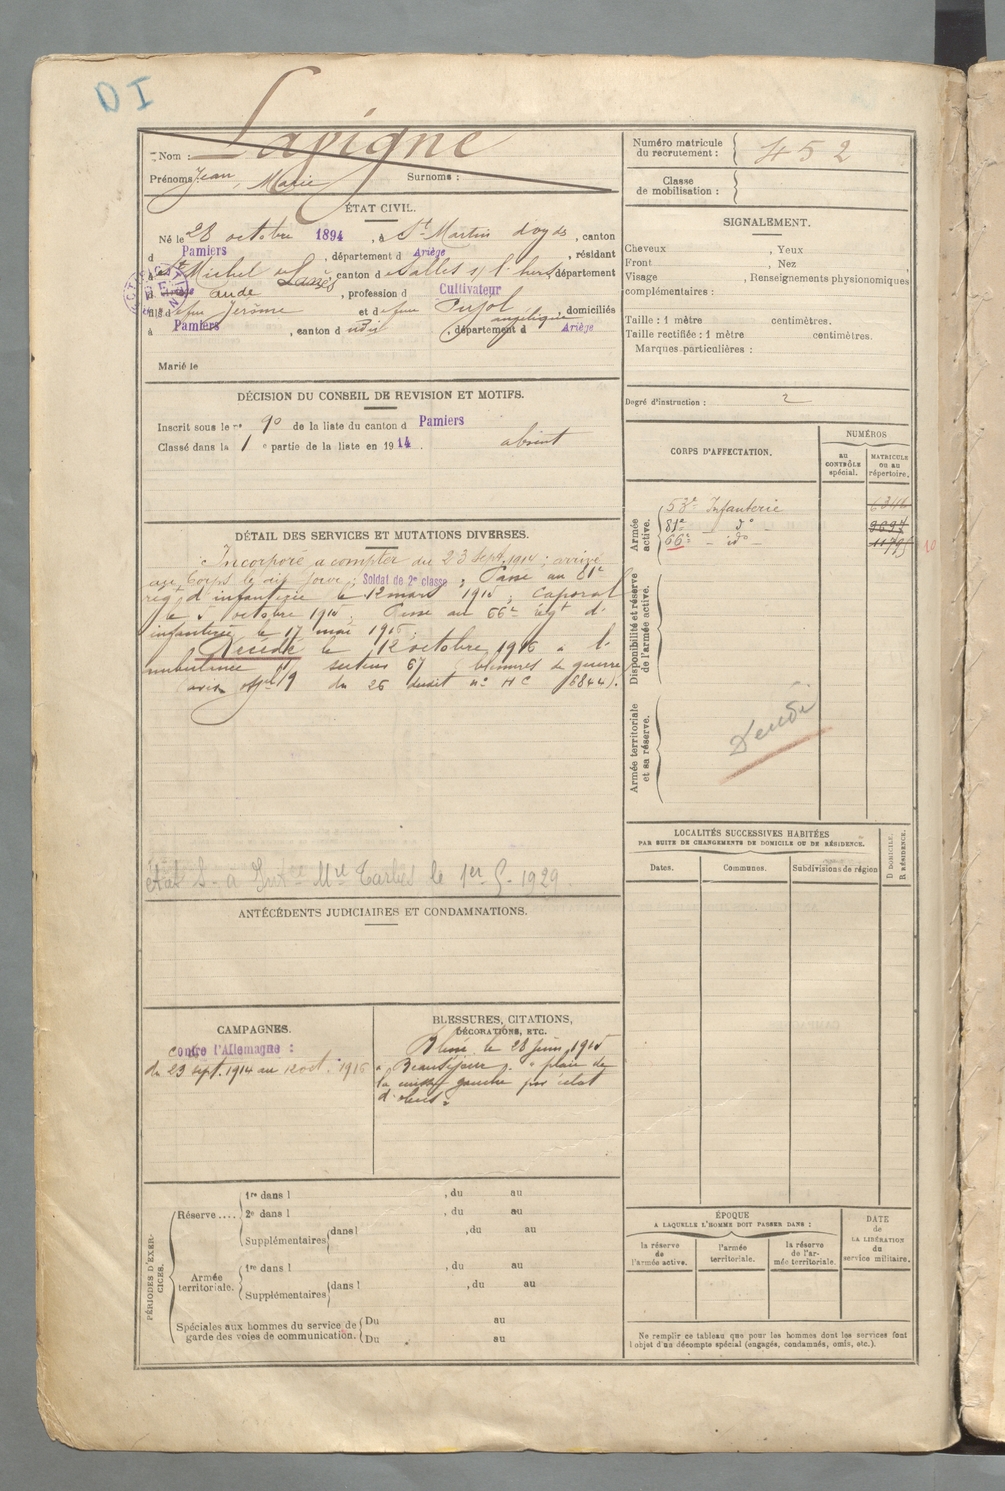 DI
Nom : Lapigne
Numéro matricule du recrutement : 452
Prénoms Jean, Marie Surnoms :
Classe de mobilisation :
ÉTAT CIVIL.
Né le 28 octobre 1894, à St Martin d'oyds, canton
d Pamiers, département d Ariège, résidant
à St Michel de Lanès, canton d Salles s/ l'hers, département
d Aude, profession d Cultivateur
fils d feu Jérôme et d feue Pujol angélique, domiciliés
à Pamiers, canton d udit, département d Ariège
Marié le
SIGNALEMENT.
Cheveux , Yeux
Front , Nez ,
Visage , Renseignements physionomiques
complémentaires :
Taille : 1 mètre centimètres.
Taille rectifiée : 1 mètre centimètres.
Marques particulières :
Degré d'instruction : 2
DÉCISION DU CONSEIL DE REVISION ET MOTIFS.
Inscrit sous le n° 90 de la liste du canton d Pamiers
Classé dans la 1 e partie de la liste en 1914. absent
DÉTAIL DES SERVICES ET MUTATIONS DIVERSES.
Incorporé a compter du 23 sept. 1914 ; arrivé
au Corps le dit jour ; Soldat de 2e classe ; Passé au 81e
régt d'infanterie le 12 mars 1915 ; Caporal
le 5 octobre 1915 Passé au 66e régt d'
infanterie le 17 mai 1916 ;
Décédé le 12 octobre 1916 a l'
ambulance secteur 67 blessures de guerre
avis du 26 dudit n° HC 6844).
état S. à Int ce Mre Tarbes le 1er 5-1929
CORPS D'AFFECTATION.
NUMÉROS
au CONTRÔLE spécial.
MATRICULE ou au répertoire.
Armée active.
53e Infanterie 6346
81e — do — 9697
66e — ido — 11795 10
Disponibilité et réserve de l'armée active.
Armée territoriale et sa réserve.
LOCALITÉS SUCCESSIVES HABITÉES
PAR SUITE DE CHANGEMENTS DE DOMICILE OU DE RÉSIDENCE.
Dates. Communes. Subdivisions de région
D DOMICILE.
R RÉSIDENCE.
ANTÉCÉDENTS JUDICIAIRES ET CONDAMNATIONS.
CAMPAGNES.
contre l'Allemagne :
du 23 sept. 1914 au 12 oct. 1916
BLESSURES, CITATIONS,
DÉCORATIONS, ETC.
Blessé le 28 juin 1915
à Beauséjour plaie de
la cuisse gauche par éclat
d'obus.
PÉRIODES D'EXERCICES.
Réserve....
1re dans l , du au
2e dans l , du au
Supplémentaires dans l , du au
Armée territoriale.
1re dans l , du au
Supplémentaires dans l , du au
Spéciales aux hommes du service de garde des voies de communication.
Du au
Du au
ÉPOQUE
A LAQUELLE L'HOMME DOIT PASSER DANS :
la réserve de l'armée active.
l'armée territoriale.
la réserve de l'armée territoriale.
DATE de LA LIBÉRATION du service militaire.
Ne remplir ce tableau que pour les hommes dont les services font
l'objet d'un décompte spécial (engagés, condamnés, omis, etc.).